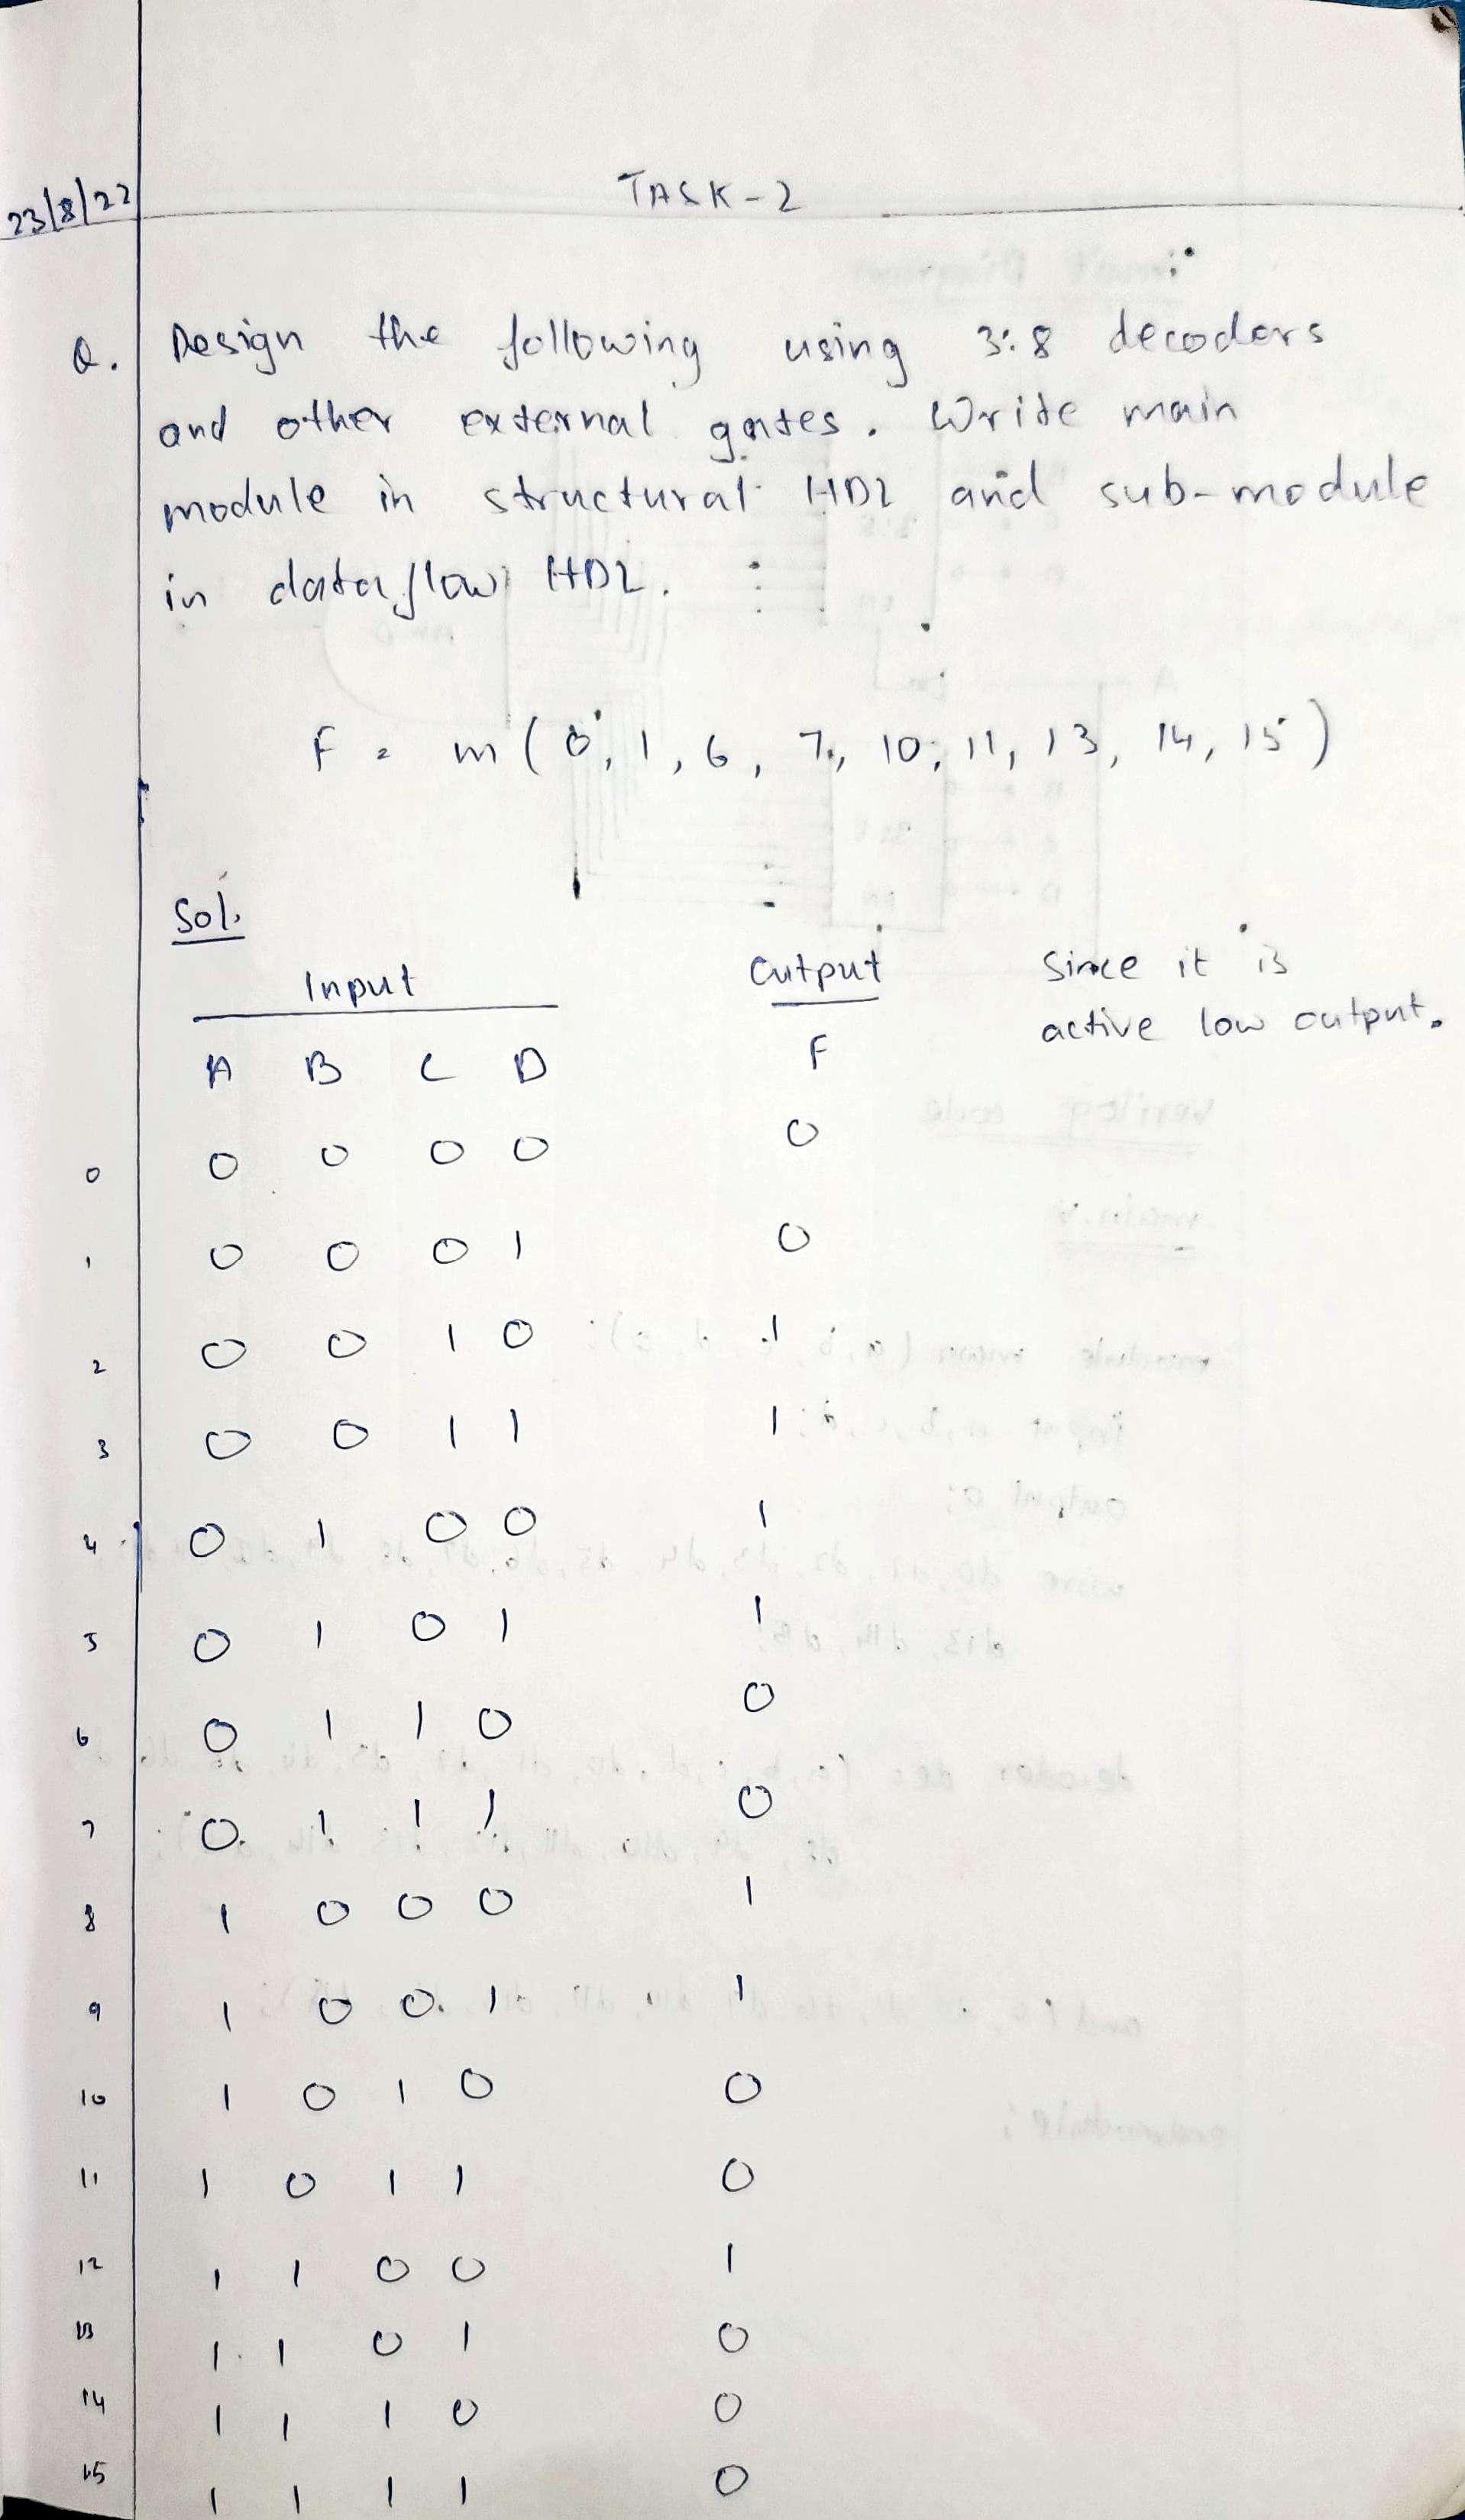 23/8/22
TASK-2
Q. Design the following using 3:8 decoders
and other external gates. Write main
module in structural HDL and sub-module
in dataflow HDL.
F = m(0, 1, 6, 7, 10, 11, 13, 14, 15)
Sol.
Input Output Since it is
active low output.
A B C D F
0 0 0 0 0 0
1 0 0 0 1 0
2 0 0 1 0 1
3 0 0 1 1 1
4 0 1 0 0 1
5 0 1 0 1 1
6 0 1 1 0 0
7 0 1 1 1 0
8 1 0 0 0 1
9 1 0 0 1 1
10 1 0 1 0 0
11 1 0 1 1 0
12 1 1 0 0 1
13 1 1 0 1 0
14 1 1 1 0 0
15 1 1 1 1 0